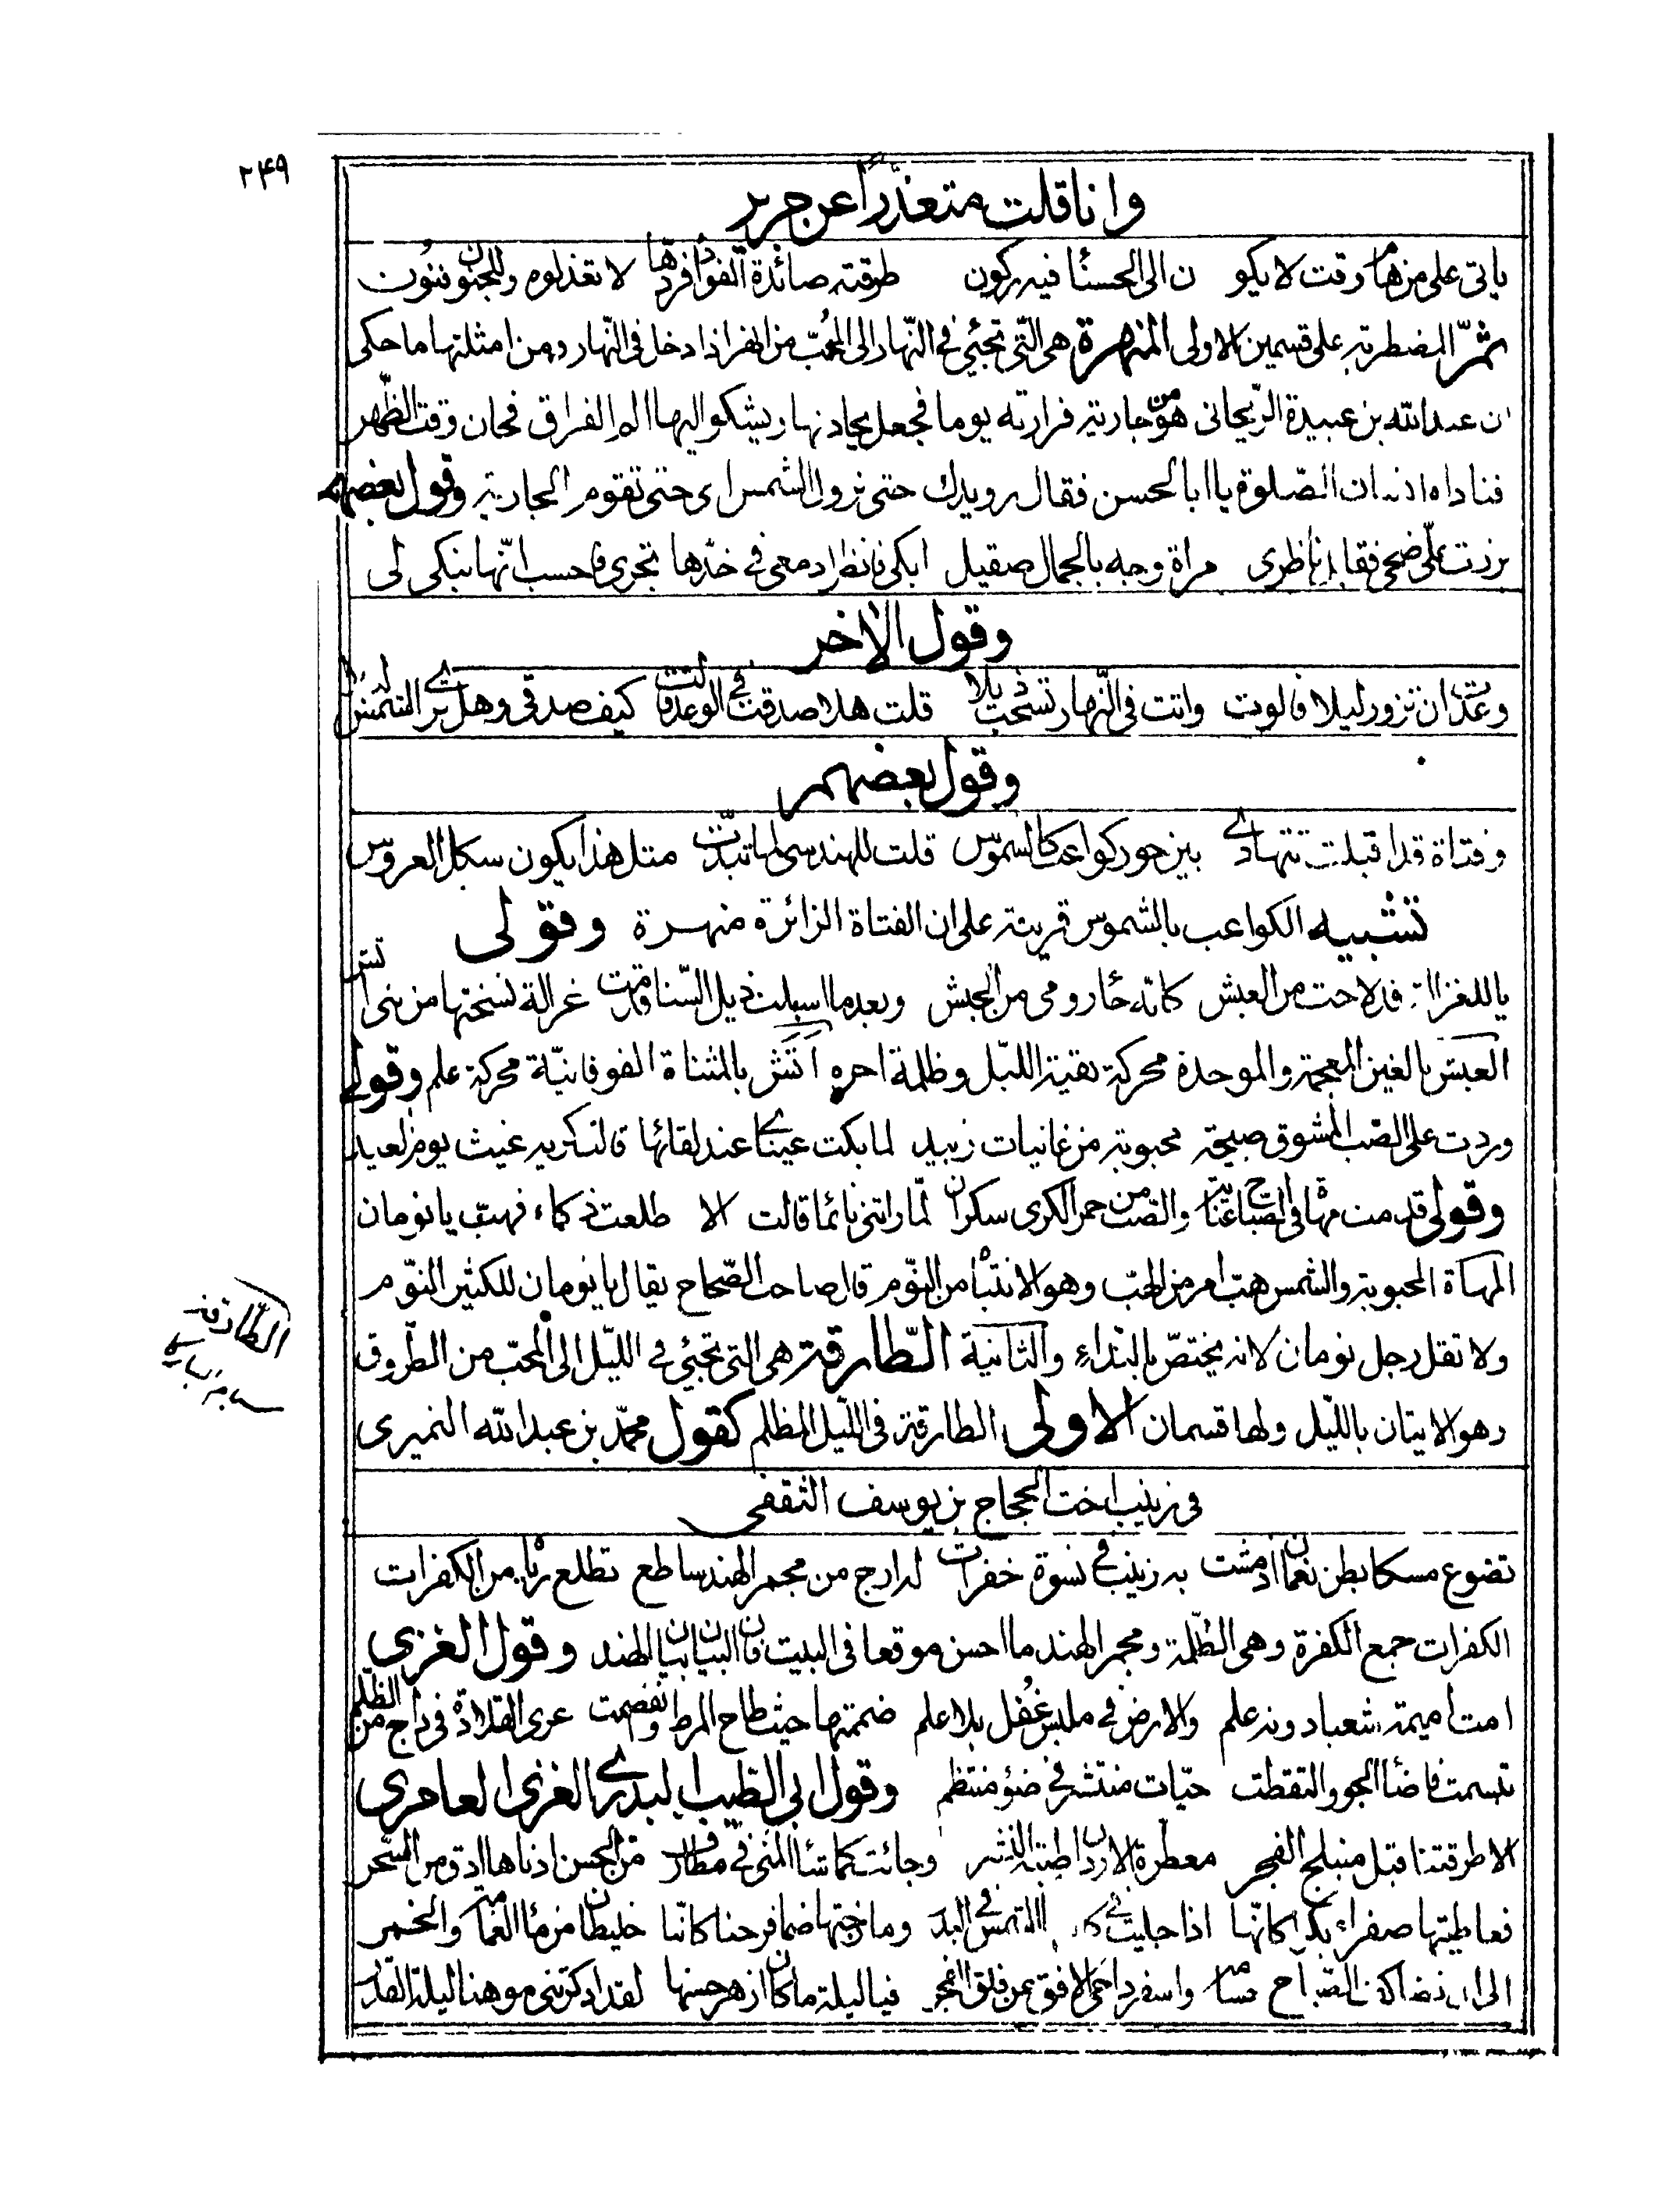 ۲۴۹
وانا قلت متعذرا عن جرير
ياتى على من هام وقت لا يكو ن الى الحسناء فيه ركون طرقته صائدة الفؤاد فردها لا تعذلوه وللجنون فنون
ثمّ المضطربه على قسمين الاولى المنهرة هى التى تجئى فى النّهار الى المحبّ من انهر اذا دخل فى النّهار ومن امثلتها ما حكى
ان عبدالله بن عبيدة الرّيحانى هوى جارية فزارته يوما فجعل يحادثها ويشكو اليها الم الفراق فحان وقت الظّهر
فناداه انسان الصّلوة يا ابا الحسن فقال رويدك حتى تزول الشمس اى حتى تقوم الجارية وقول بعضهم
برزت علىّ ضحى فقابل ناظرى مراة وجه بالجمال صقيل ابكى فانظر ادمعى فى خدّها تجرى فاحسب انّها تبكى لى
وقول الاخر
وعدت ان تزور ليلا فالوت واتت فى النّهار تسحب ذيلا قلت هلا صدقت فى الوعد قالت كيف صدقى وهل ترى الشمس ليلا
وقول بعضهم
وفتاة قد اقبلت تتهادى بين حور كواعب كالشموس قلت للهندسى لما تبدّت مثل هذا يكون شكل العروس
تشبيه الكواعب بالشموس قرينة على ان الفتاة الزائرة منهرة وقولى
يا للغزالة قد لاحت من الغبش كانّه جاء رومى من الحبش وبعدما اسبلت ذيل السّنا قدمت غزالة نسختها من بنى اتش
الغبش بالغين المعجمة والموحدة محركة بقية اللّيل وظلمة اخره اتش بالمثناة الفوقانيّة محركة علم وقولى
وردت على الصّب المشوق صبيحة محبوبة من غانيات زبيد لما بكت عيناى عند لقائها قالت كريه غيث يوم العيد
وقولى قدمت مهاة فى الصّباح والصّب من خمر الكرى سكران لمّا راتنى نائما قالت الا طلعت ذكاء فهبّ يا نومان
المهاة المحبوبة والشمس هب امر من الهبّ وهو الانتباه من النوم قال صاحب الصّحاح يقال يا نومان للكثير النّوم
ولا تقل رجل نومان لانه يختصّ بالنّداء والثانية الطّارقة هى التى تجئى فى اللّيل الى المحبّ من الطّروق
وهو الاتيان باللّيل ولها قسمان الاولى الطارقة فى اللّيل المظلم كقول محمّد بن عبدالله النميرى
الطّارقة
فى زينب اخت الحجاج بن يوسف الثقفى
تضوع مسكا بطن نعمان اذ مشت به زينب فى نسوة خفرات له ارج من مجمر الهند ساطع تطلع رياه من الكفرات
الكفرات جمع الكفرة وهى الظّلمة ومجمر الهند ما احسن موقعا فى البيت فان البنيان بنيان الهند وقول الغزى
امت اميمة شعبا دونه علم والارض فى ملبس غفل بلا علم ضممتها حيث طاح المرط وانفصمت عرى القلادة فى داج من الظلم
تبسمت فاضاء الجو والتقطت حبّات منتثر فى ضوء منتظم وقول ابى الطّيب البدرى الغزى العامرى
الا طرقتنا قبل منبلج الفجر معطرة الاردان طيبة النشر وجائت كما شاء المنى فى مطارف من الحسن ادناها ادق من السّحر
فعاطيتها صفراء بكرا كانّها اذا جليت فى الشمس فى البدر ومازجتها ضما فرحنا كانّنا خليطان من ماء الغمامة والخمر
الى ان الصّباح واسفر داجى الافق عن فلق الفجر فيا ليلة ما كان ازهر حسنها لقد اذكرتنى موهنا ليلة القدر